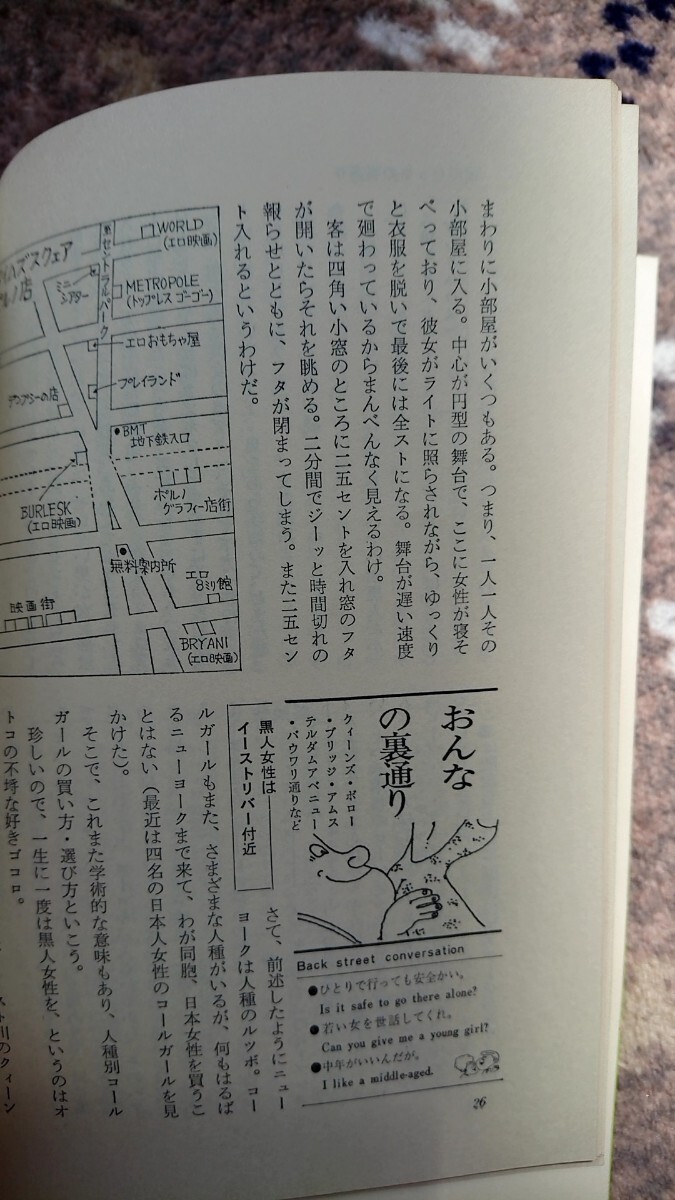 まわりに小部屋がいくつもある。つまり、一人一人その
小部屋に入る。中心が円型の舞台で、ここに女性が寝そ
べっており、彼女がライトに照らされながら、ゆっくり
と衣服を脱いで最後には全ストになる。舞台が遅い速度
で廻わっているからまんべんなく見えるわけ。
客は四角い小窓のところに二五セントを入れ窓のフタ
が開いたらそれを眺める。二分間でジーッと時間切れの
報らせとともに、フタが閉まってしまう。また二五セン
ト入れるというわけだ。
WORLD
(エロ映画)
セントラルパーク
ムズスクェア
ルノ店
ミニ
シアター
METROPOLE
(トップレス ゴーゴー)
エロおもちゃ屋
プレイランド
デンプシーの店
BMT
地下鉄入口
ポルノ
グラフィー店街
BURLESK
(エロ映画)
無料案内所
エロ
8ミリ館
映画街
BRYANI
(エロ映画)
おんな
の裏通り
クィーンズ・ボロー
・ブリッジ・アムス
テルダムアベニュー
・バウワリ通りなど
Back street conversation
●ひとりで行っても安全かい。
Is it safe to go there alone?
●若い女を世話してくれ。
Can you give me a young girl?
●中年がいいんだが。
I like a middle-aged.
黒人女性は
イーストリバー付近
さて、前述したようにニュー
ヨークは人種のルツボ。コー
ルガールもまた、さまざまな人種がいるが、何もはるば
るニューヨークまで来て、わが同胞、日本女性を買うこ
とはない(最近は四名の日本人女性のコールガールを見
かけた)。
そこで、これまた学術的な意味もあり、人種別コール
ガールの買い方・選び方といこう。
珍しいので、一生に一度は黒人女性を、というのはオ
トコの不埒な好きゴコロ。
スト川のクィーン
26